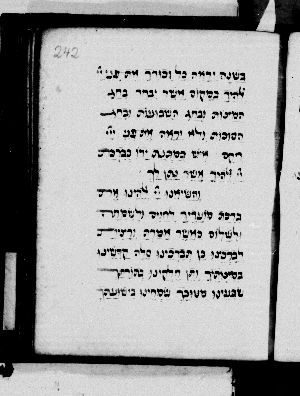 242
בשנה יראה כל זכורך את פני יי
אלהיך במקום אשר יבחר בחג
המצות ובחג השבועות ובחג
הסוכות ולא יראה את פני יי
ריקם איש כמתנת ידו כברכת
יי אלהיך אשר נתן לך
והשיאנו יי אלהינו את
ברכת מועדיך לחיים ולשמחה
ולשלום כאשר אמרת ורצית
לברכנו כן תברכינו סלה קדשינו
במצותיך ותן חלקינו בתורתך
שבעינו מטובך שמחינו בישועתך